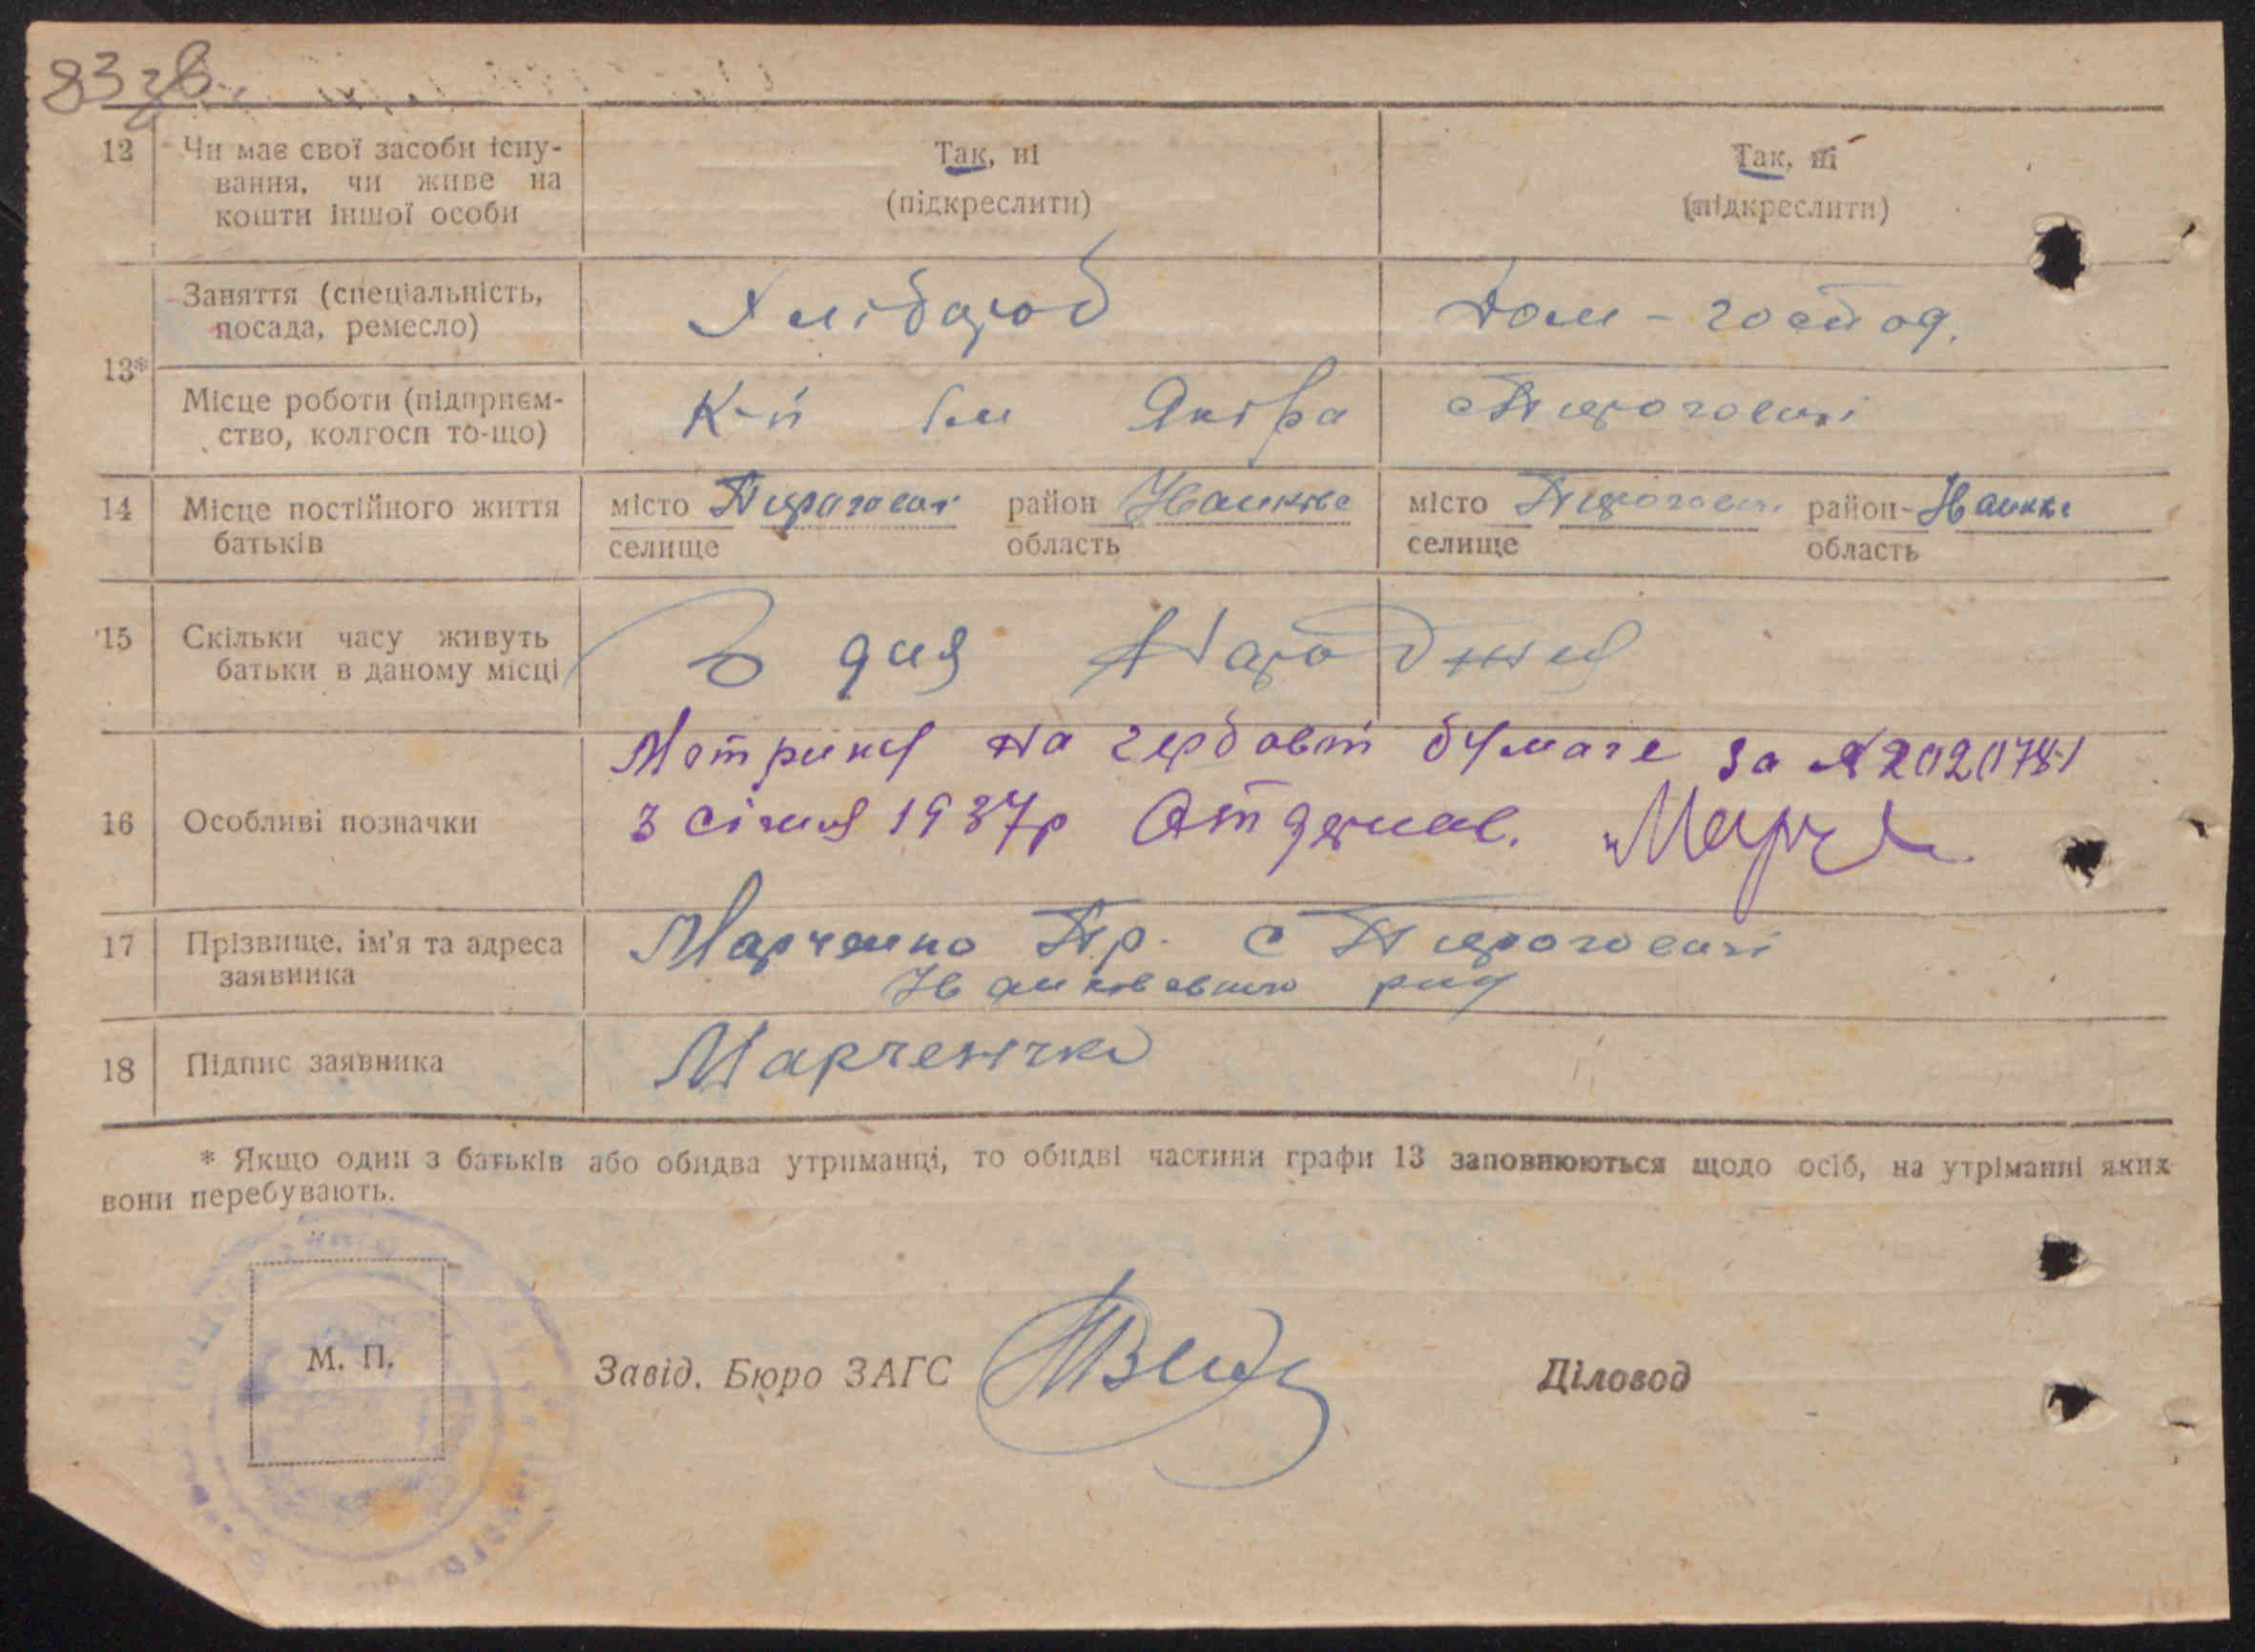 83 зв.
12 Чи має свої засоби існу-
вання, чи живе на
кошти іншої особи
Так, ні
(підкреслити)
Так, ні
(підкреслити)
13*
Заняття (спеціальність,
посада, ремесло)
Хлібороб
Дом-господ.
Місце роботи (підприєм-
ство, колгосп то-що)
К-п ім
с Пирогович
14 Місце постійного життя
батьків
місто Пирогович район
селище область
місто Пирогович район
селище область
15 Скільки часу живуть
батьки в даному місці
З дня народжня
16 Особливі позначки
Метрику на гербовій бумаге за №
3 січня 1937р Отдержав. Марч
17 Прізвище, ім'я та адреса
заявника
Марченко Пр. с Пирогович
18 Підпис заявника
Марченчко
* Якщо один з батьків або обидва утриманці, то обидві частини графи 13 заповнюються щодо осіб, на утріманні яких
вони перебувають.
М. П.
Завід. Бюро ЗАГС
Діловод